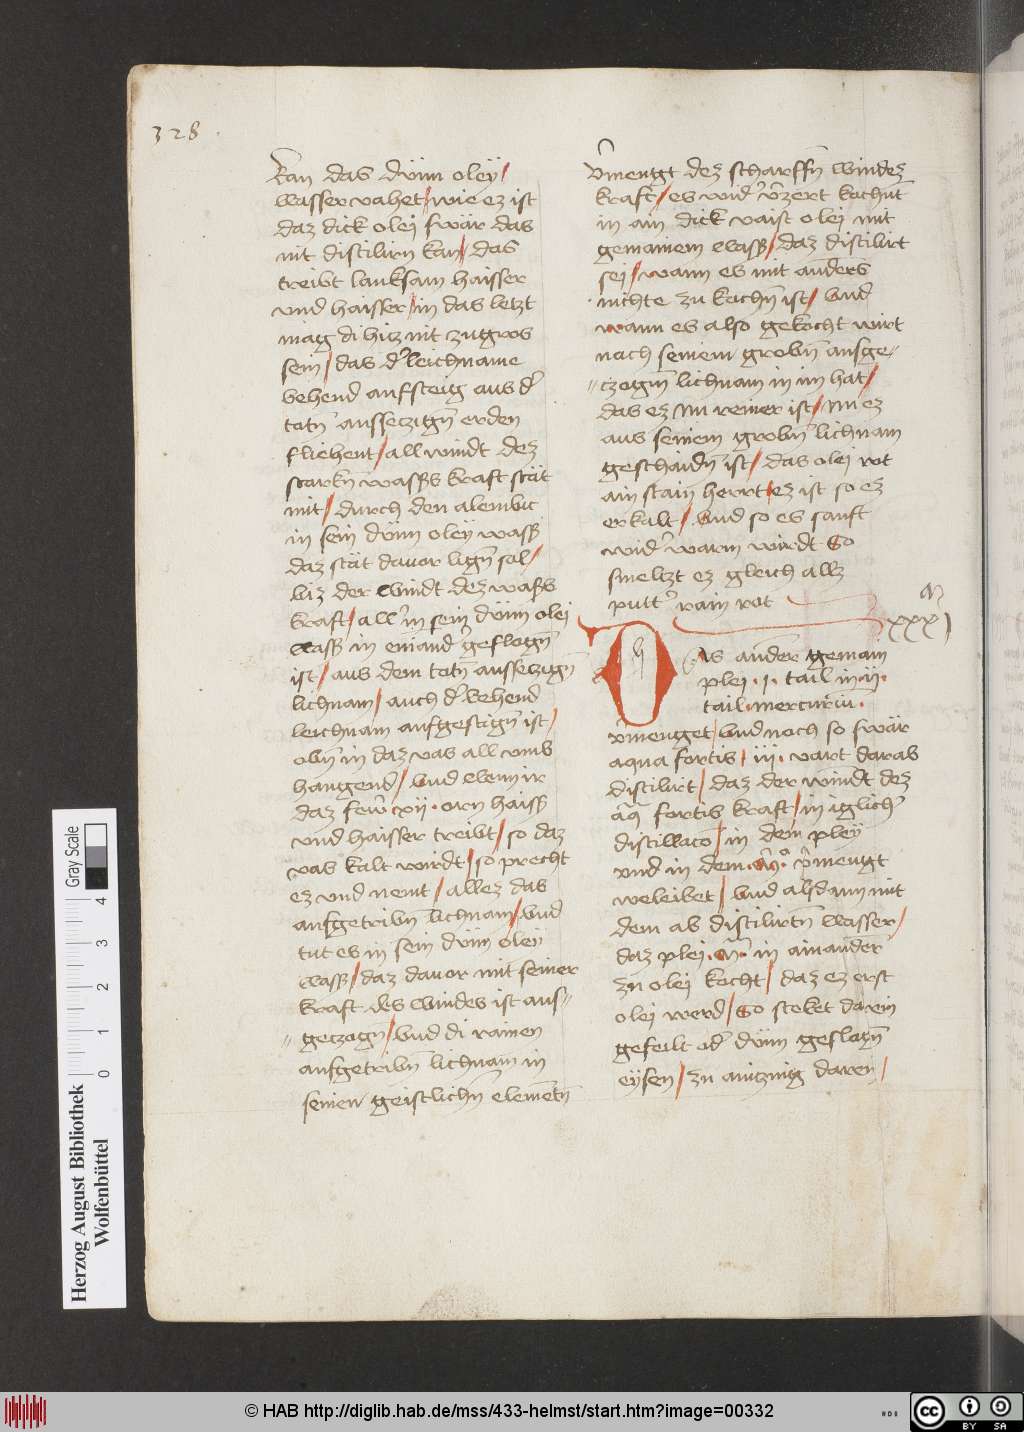 328
kan das dünn oley /
wasser vahet / wie ez ist
daz dick olei swär das
nit distilirn kan / das
treibt lanksam haisser
vnd haisser / in das letzt
mag di hiz nit zu gros
sein / das d' leichname
behend aufsteig aus d'
totn̄ aussetzign̄ erden
fliehent / all windt dez
starkn̄ wassers kraft stät
mit / durch den alembic
in sein dünn oley wass'
daz stät dauor lign̄ sol /
biz der windt dez wass's
kraft / all' in sein dünn olei
wass' in einand' geflogn̄
ist / aus dem totn̄ aussetzign̄
lichnam / auch d' behend
leichnam aufgestign̄ ist /
obn̄ in daz vas all vmb
hangend / vnd
daz fewr xii · orn haiss'
vnd haisser treibt / so daz
vas kalt wirdt / so precht
ez vnd nemt / allez das
aufgetribn̄ lichnam / vnd
tut es in sein dünn oley
wass' / daz dauor mit seiner
kraft des windes ist aus=
=geczogn̄ / vnd di rainen
aufgetribn̄ lichnam in
seinen geistlichn̄ elemētn̄
v'mengt dez scharffn̄ windez
kraft / es wid' v'zert kochnt
in ain dick vaist olei mit
gemainem wass' / daz distilirt
sei / wann es mit anders
nichte zu kochn̄ ist / vnd
wann es also gekocht wirt
nach seinem grobn̄ ausge=
=czogn̄ lichnam in im hat /
das ez nu reiner ist / nu ez
aus seinem grobn̄ lichnam
geschaidn̄ ist / das olei rot
ain stain herrt / ez ist so ez
erkalt / vnd so es sanft
wid' warm wirdt So
smeltzt ez gleich allz
putt' rain rot
xxxj
DAs ander gemain
plei · j · tail in ij ·
tail · mercuriu ·
v'menget / vnd noch so swär
aqua fortis / iij · vart darab
distilirt / daz der windt dez
aq̄ fortis kraft / in iglich'
distillaco / in dem pley
vnd in dem · v'mengt
weleibet / vnd alsdann mit
dem ab distilirtn̄ wasser /
daz plei · in ainander
zu olei kocht / daz ez erst
olei werd / So steket darein
gefeilt od' dünn geslagn̄
eysen / zu aintzing daren /
Herzog August Bibliothek
Wolfenbüttel
0 1 2 3 4
Gray Scale
© HAB http://diglib.hab.de/mss/433-helmst/start.htm?image=00332
cc BY SA